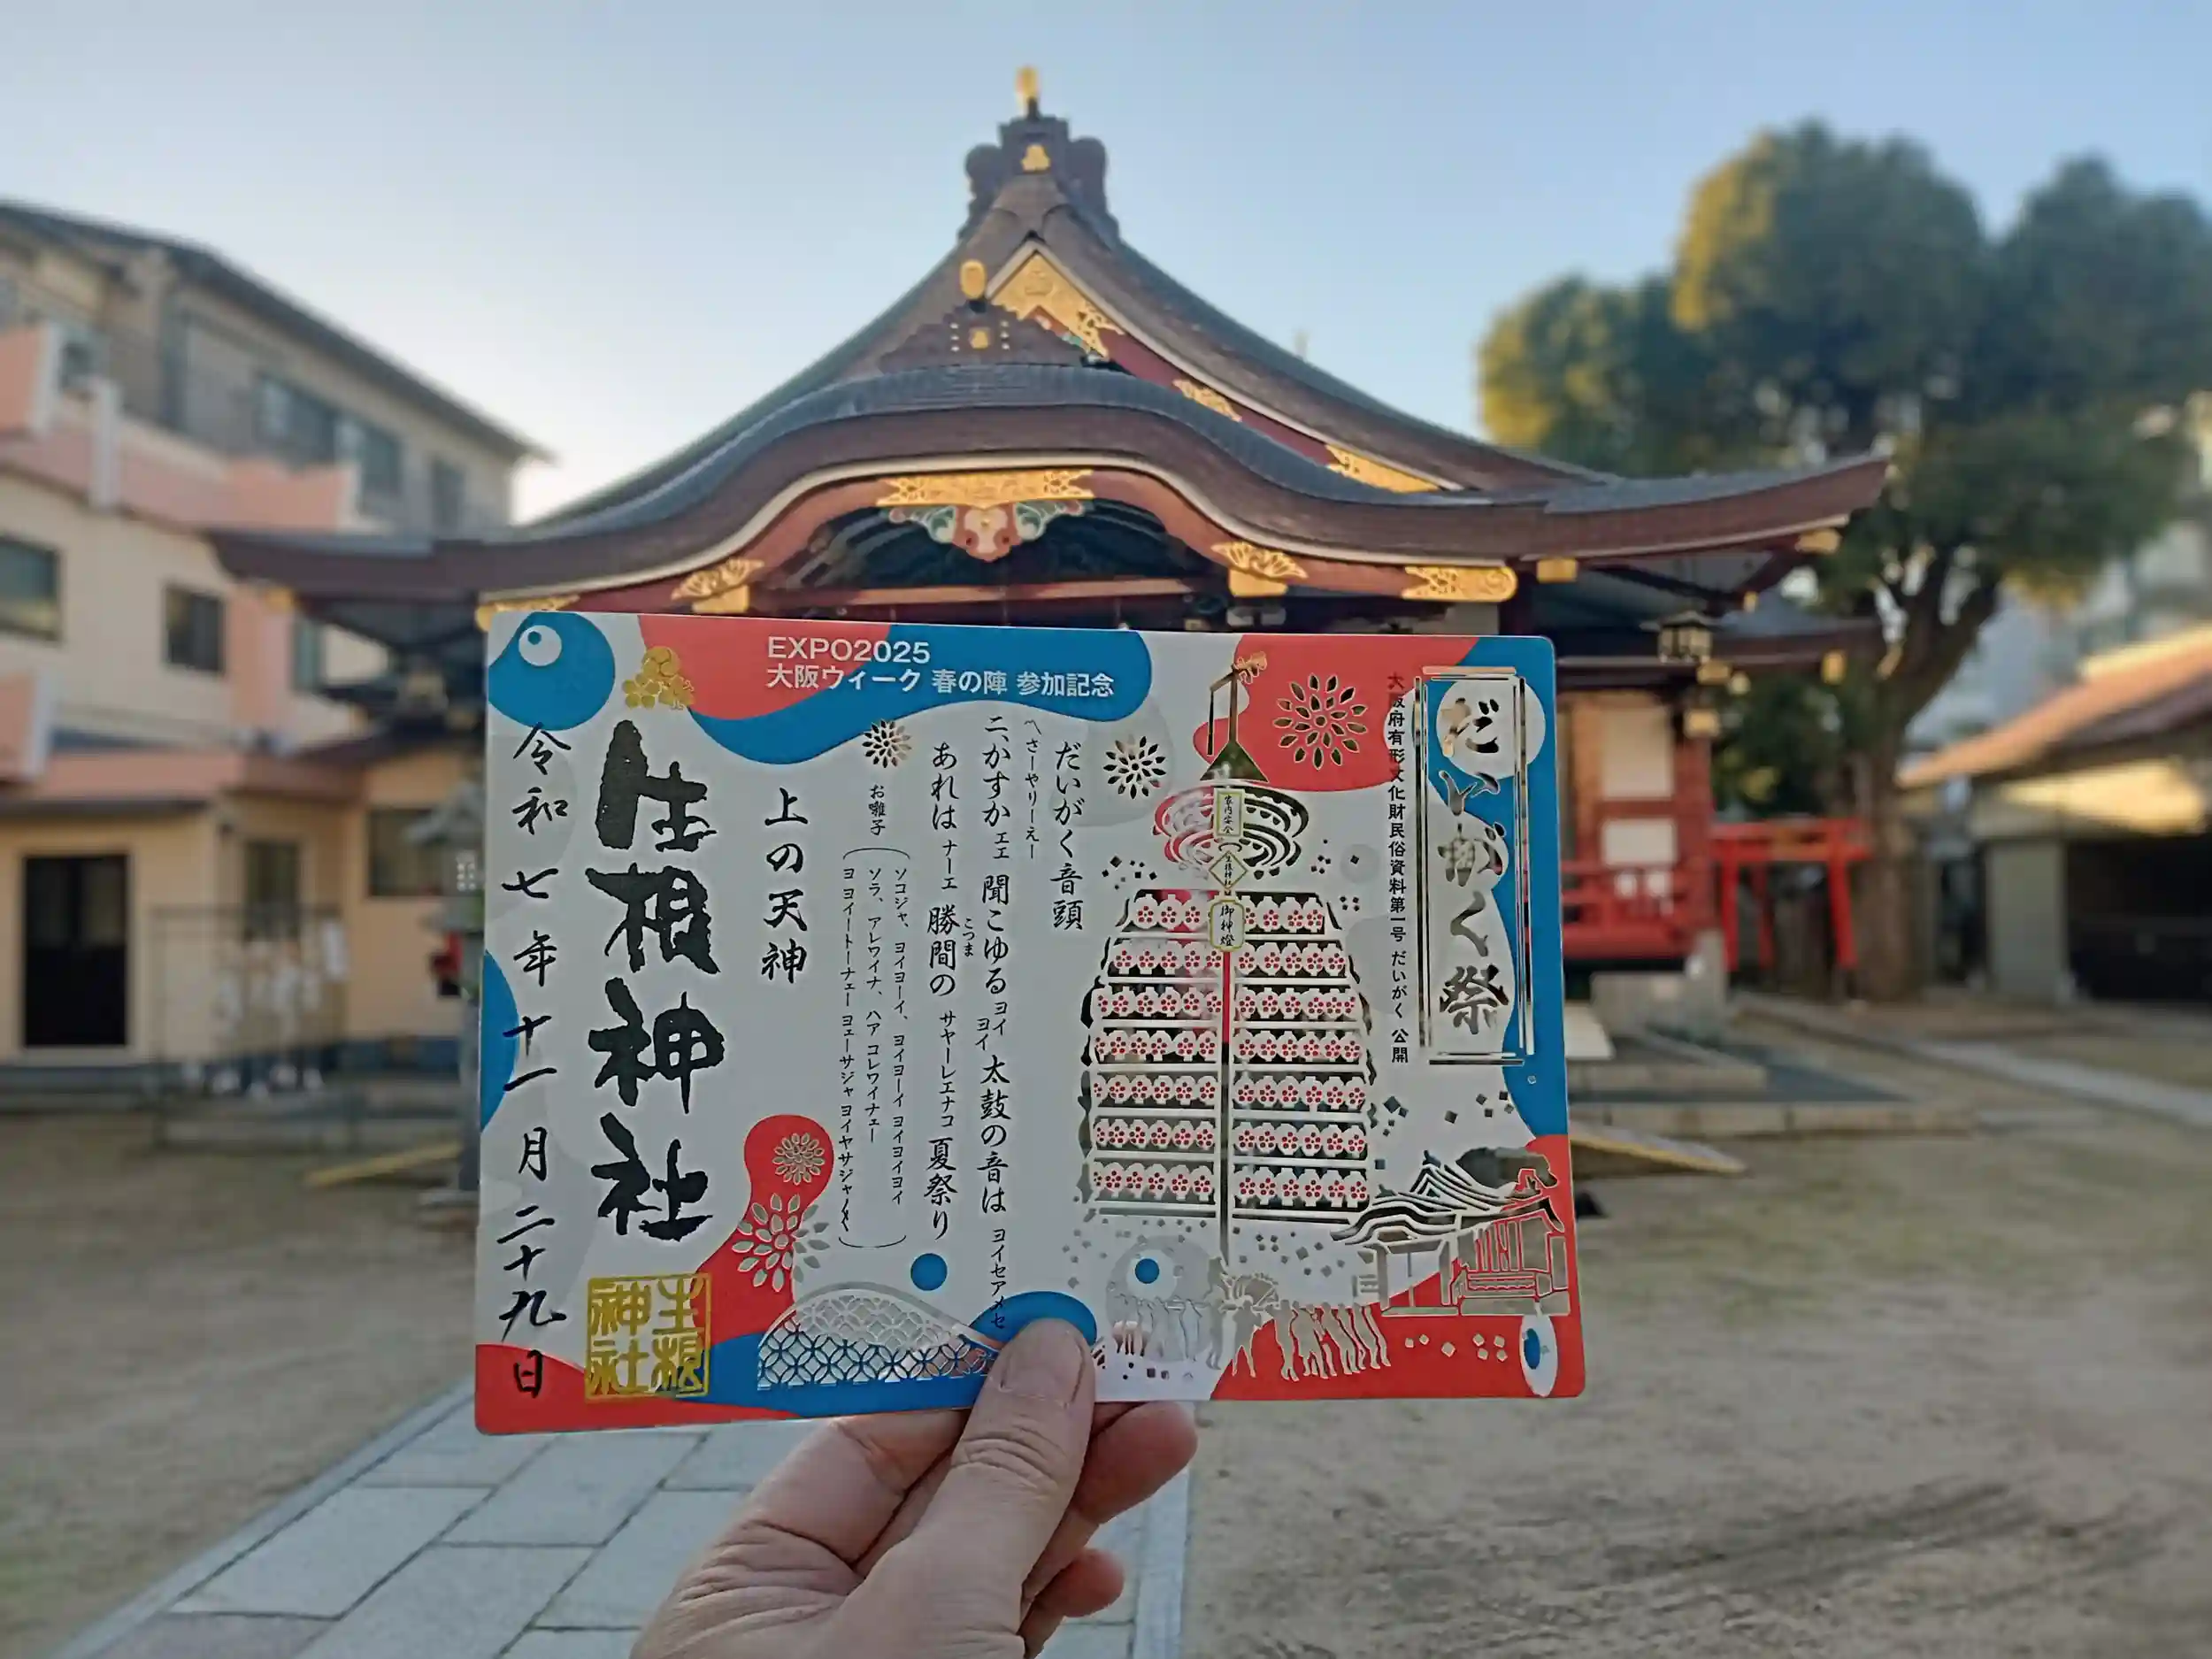 EXPO2025
大阪ウィーク 春の陣 参加記念
だいがく祭
大阪府有形文化財民俗資料第一号 だいがく 公開
家内安全
生根神社
御神燈
だいがく音頭
〽さーやりーえー
二、かすかェエ 聞こゆるヨイヨイ 太鼓の音は ヨイセアメセ
あれはナーエ 勝間のサヤーレエナコ 夏祭り
こつま
お囃子
ソコジャ、ヨイヨーイ、ヨイヨーイ ヨイヨイヨイ
ソラ、アレワイナ、ハア コレワイナェー
ヨヨイートーナェー ヨェーサジャ ヨイヤサジャ〳〵
上の天神
生根神社
生根神社
令和七年十一月二十九日